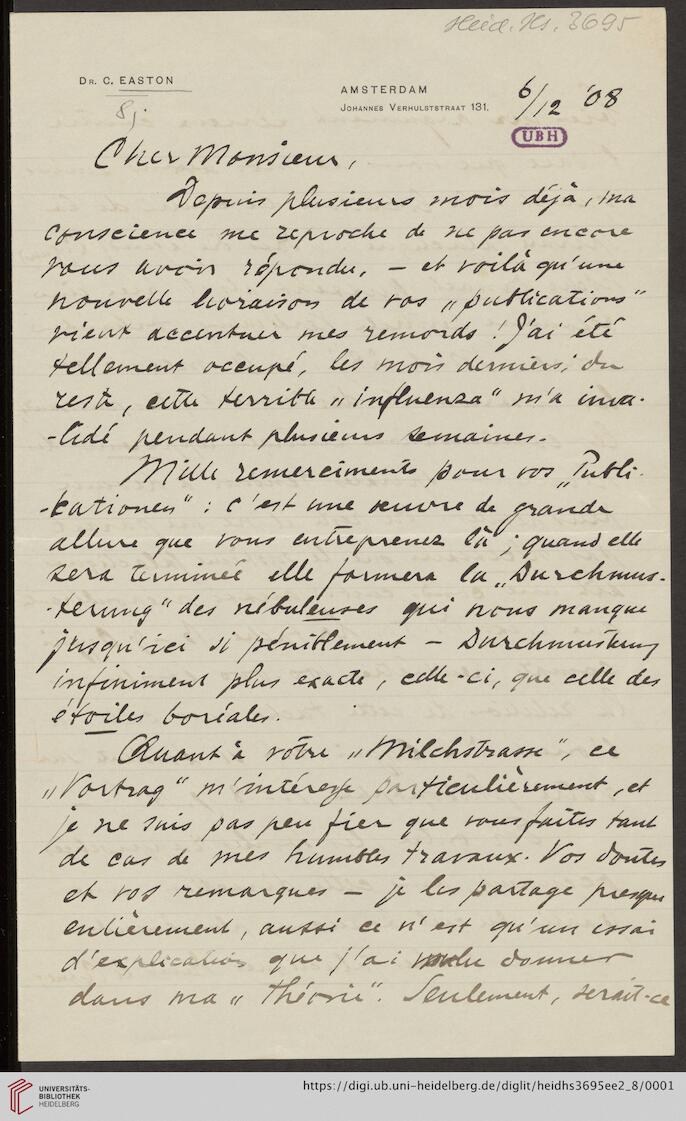 Heid. Hs. 3695
DR. C. EASTON
8j.
AMSTERDAM
JOHANNES VERHULSTSTRAAT 131.
6/12 '08
UBH
Cher Monsieur,
Depuis plusieurs mois déjà, ma
conscience me reproche de ne pas encore
vous avoir répondu, – et voilà qu'une
nouvelle livraison de vos „publications"
vient accentuer mes remords ! J'ai été
tellement occupé, les mois derniers; du
reste, cette terrible „influenza" m'a inva-
-lidé pendant plusieurs semaines.
Mille remerciments pour vos „Publi-
-kationen" : c'est une œuvre de grande
allure que vous entreprenez là ; quand elle
sera terminée elle formera la „Durchmus-
-terung" des nébuleuses qui nous manque
jusqu'ici si péniblement – Durchmusterung
infiniment plus exacte, celle-ci, que celle des
étoiles boréales.
Quant à votre „Milchstrasse", ce
„Vortrag" m'intéresse particulièrement, et
je ne suis pas peu fier que vous faites tant
de cas de mes humbles travaux. Vos doutes
et vos remarques – je les partage presque
entièrement, aussi ce n'est qu'un essai
d'explication que j'ai voulu donner
dans ma „théorie". Seulement, serait-ce
UNIVERSITÄTS-
BIBLIOTHEK
HEIDELBERG
https://digi.ub.uni-heidelberg.de/diglit/heidhs3695ee2_8/0001